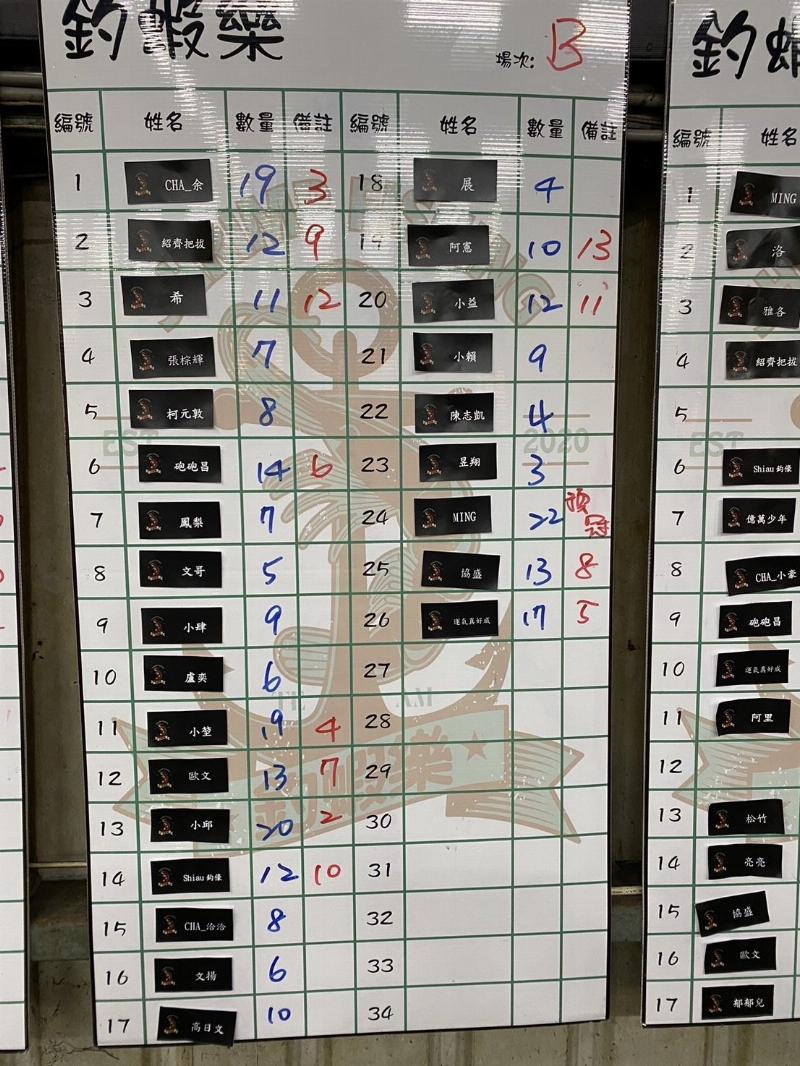 釣蝦樂
場次: B
編號 姓名 數量 備註 編號 姓名 數量 備註
1 CHA_余 19 3 18 展 4
2 紹齊把拔 12 9 19 阿憲 10 13
3 希 11 12 20 小益 12 11
4 張棕輝 7 21 小賴 9
5 柯元敦 8 22 陳志凱 4
6 砲砲昌 14 6 23 昱翔 3
7 鳳梨 7 24 MING 22 預冠
8 文哥 5 25 協盛 13 8
9 小肆 9 26 運氣真好成 17 5
10 盧奕 6 27
11 小堃 19 4 28
12 歐文 13 7 29
13 小邱 20 2 30
14 Shiau釣傢 12 10 31
15 CHA_洽洽 8 32
16 文揚 6 33
17 高日文 10 34
EST 2020
釣蝦樂
釣
編號 姓名
1 MING
2 洛
3 雅各
4 紹齊把拔
5
6 Shiau釣傢
7 億萬少年
8 CHA_小豪
9 砲砲昌
10 運氣真好成
11 阿里
12
13 松竹
14 亮亮
15 協盛
16 歐文
17 郁郁兒
EST